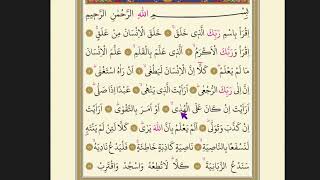 بِسْمِ اللهِ الرَّحْمٰنِ الرَّحِيمِ
اِقْرَأْ بِاسْمِ رَبِّكَ الَّذِى خَلَقَۚ خَلَقَ الْاِنْسَانَ مِنْ عَلَقٍۚ
اِقْرَأْ وَرَبُّكَ الْاَكْرَمُۙ اَلَّذِى عَلَّمَ بِالْقَلَمِۙ عَلَّمَ الْاِنْسَانَ
مَا لَمْ يَعْلَمْۜ كَلَّٓا اِنَّ الْاِنْسَانَ لَيَطْغٰىۙ اَنْ رَاٰهُ اسْتَغْنٰىۜ
اِنَّ اِلٰى رَبِّكَ الرُّجْعٰىۜ اَرَاَيْتَ الَّذِى يَنْهٰىۙ عَبْدًا اِذَا صَلّٰىۜ
اَرَاَيْتَ اِنْ كَانَ عَلَى الْهُدٰىۙ اَوْ اَمَرَ بِالتَّقْوٰىۜ اَرَاَيْتَ
اِنْ كَذَّبَ وَتَوَلّٰىۜ اَلَمْ يَعْلَمْ بِاَنَّ اللهَ يَرٰىۜ كَلَّا لَئِنْ لَمْ يَنْتَهِ
لَنَسْفَعًا بِالنَّاصِيَةِۙ نَاصِيَةٍ كَاذِبَةٍ خَاطِئَةٍۚ فَلْيَدْعُ نَادِيَهُۙ
سَنَدْعُ الزَّبَانِيَةَۙ كَلَّاۜ لَا تُطِعْهُ وَاسْجُدْ وَاقْتَرِبْ